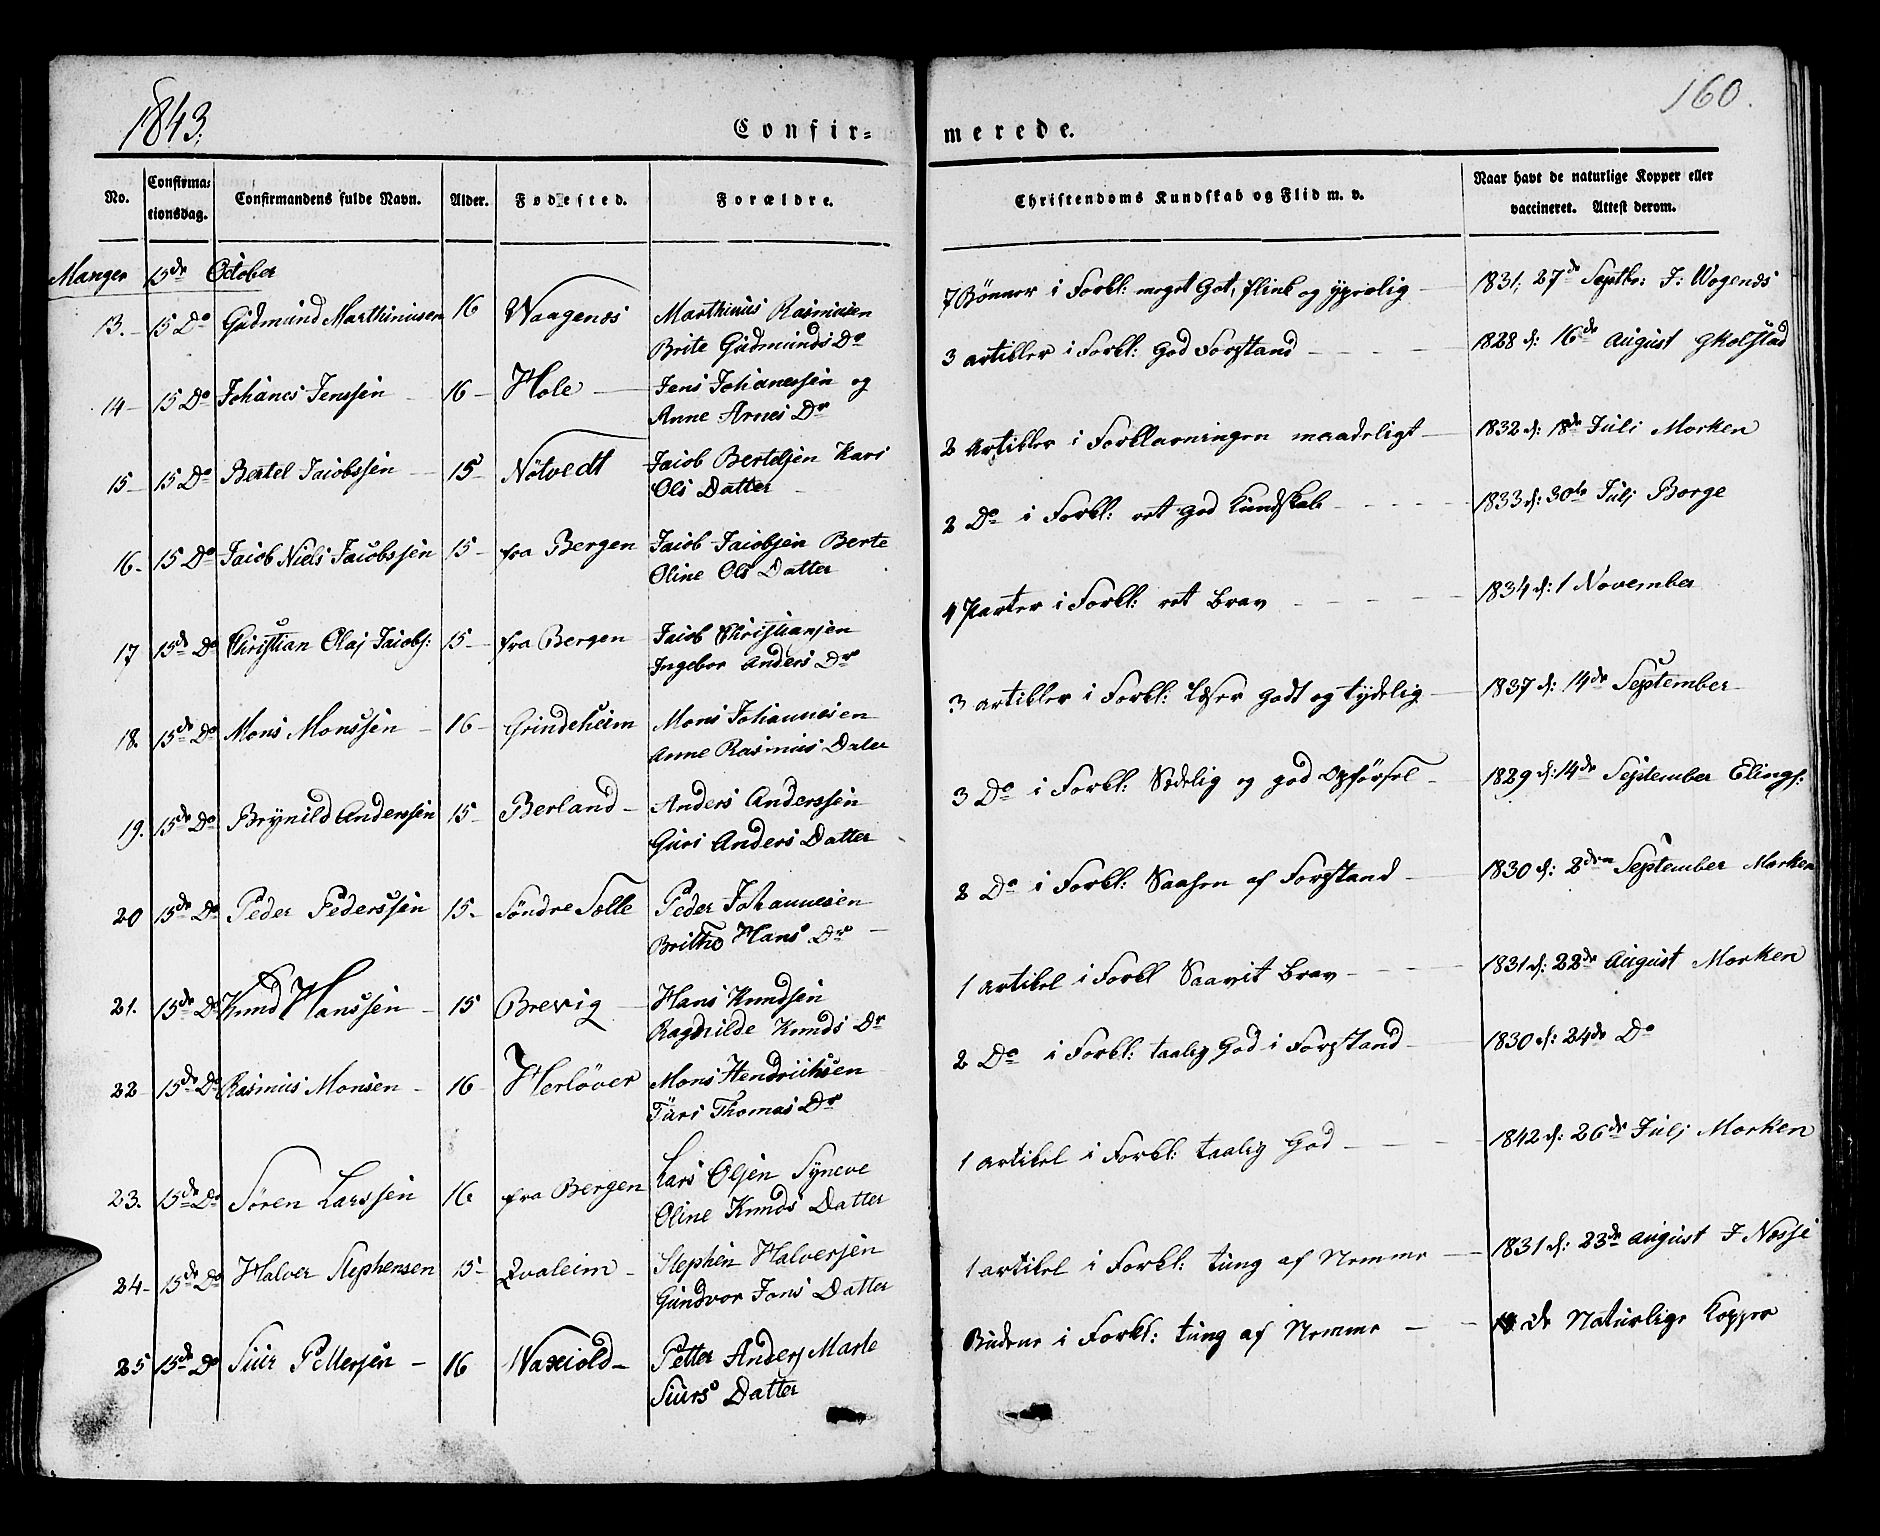 1843.
160.
Confir=
merede.
No.
Confirma=
tionsdag.
Confirmandens fulde Navn.
Alder.
Fødested.
Forældre.
Christendoms Kundskab og Flid m. v.
Naar havt de naturlige Kopper eller
vaccineret. Attest derom.
Manger 15de October
13. 15 Do Gudmund Marthinusen 16 Waagenæs Marthinus Rasmusen
Brite Gudmunds Dr
7 Bønner i Forkl: meget Got, flink og
1831, 27de Septbr: J: Wogenæs
14 15 Do Johanes Jenssen 16 Hole Jens Johanessen og
Anne Arnes Dr
3 artikler i Forkl: God Forstand
1828 d: 16de August
15 15 Do Bertel Jacobssen 15 Nötvedt Jacob Bertelsen Kari
Ols Datter
2 Artikler i Forklaringen maadeligt
1832 d: 18de Juli Morken
16. 15 Do Jacob Niels Jacobssen 15 fra Bergen Jacob Jacobsen Berte
Oline Ols Datter
2 Do i Forkl: ret god Kundskab
1833 d: 30te Julj Borge
17 15de Do Christian Olaj Jacobs: 15 fra Bergen Jacob Christiansen
Ingebor Anders Dr
4 Parter i Forkl: ret brav
1834 d: 1 November
18. 15de Do Mons Monssen 16 Grindeheim Mons Johannesen
Anne Rasmus Dater
3 artikler i Forkl: Læser godt og tydelig
1837 d: 14de September
19. 15de Do Brynild Anderssen 15 Berland Anders Anderssen
Guri Anders Datter
3 Do i Forkl: Sædelig og god Opførsel
1829 d: 14de September Elings:
20 15de Do Peder Pederssen 15. Søndre Sælle Peder Johannesen
Brithe Hans Dr
2 Do i Forkl: Saasen af Forstand
1830 d: 2den September Morken
21. 15de Do Knud Hanssen 15 Brevig Hans Knudsen
Ragnilde Knuds Dr
1 artikel i Forkl Saavit brav
1831 d: 22de August Morken
22 15de Do Rasmus Monsen 16 Herløver Mons Hendrichsen
Turi Thomas Dr
2 Do i Forkl: taalig God i Forstand
1830 d: 24de Do
23. 15de Do Søren Larssen 16 fra Bergen Lars Olsen Syneve
Oline Knuds Datter
1 artikel i Forkl: taalig God
1842 d: 26de Julj Morken
24 15de Do Halver Stephensen 15 Qvaleim Stephen Halversen
Gundvor Jons Datter
1 artikel i Forkl: tung af Nemme
1831 d: 23de August J Næsse
25 15de Do Siur Pettersen 16 Waxiold Petter Anders Marte
Siurs Datter
Budene i Forkl: tung af Nemme
de Naturlige Kopper